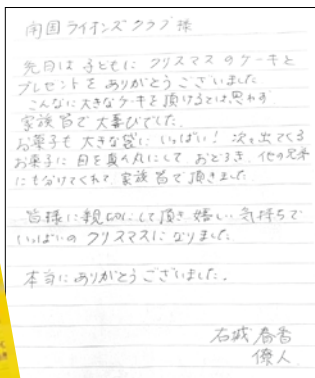 南国ライオンズクラブ様
先日は子どもに クリスマスのケーキと
プレゼントを ありがとうございました
こんなに大きなケーキを頂けるとは思わず
家族皆で大喜びでした。
お菓子も大きな袋に いっぱい! 次々出てくる
お菓子に目を真ん丸にして、おどろき、他の兄弟
にも分けてくれて、家族皆で頂きました。
皆様に親切にして頂き嬉しい気持ちで
いっぱいの クリスマスになりました。
本当にありがとうございました。
春香
僚人